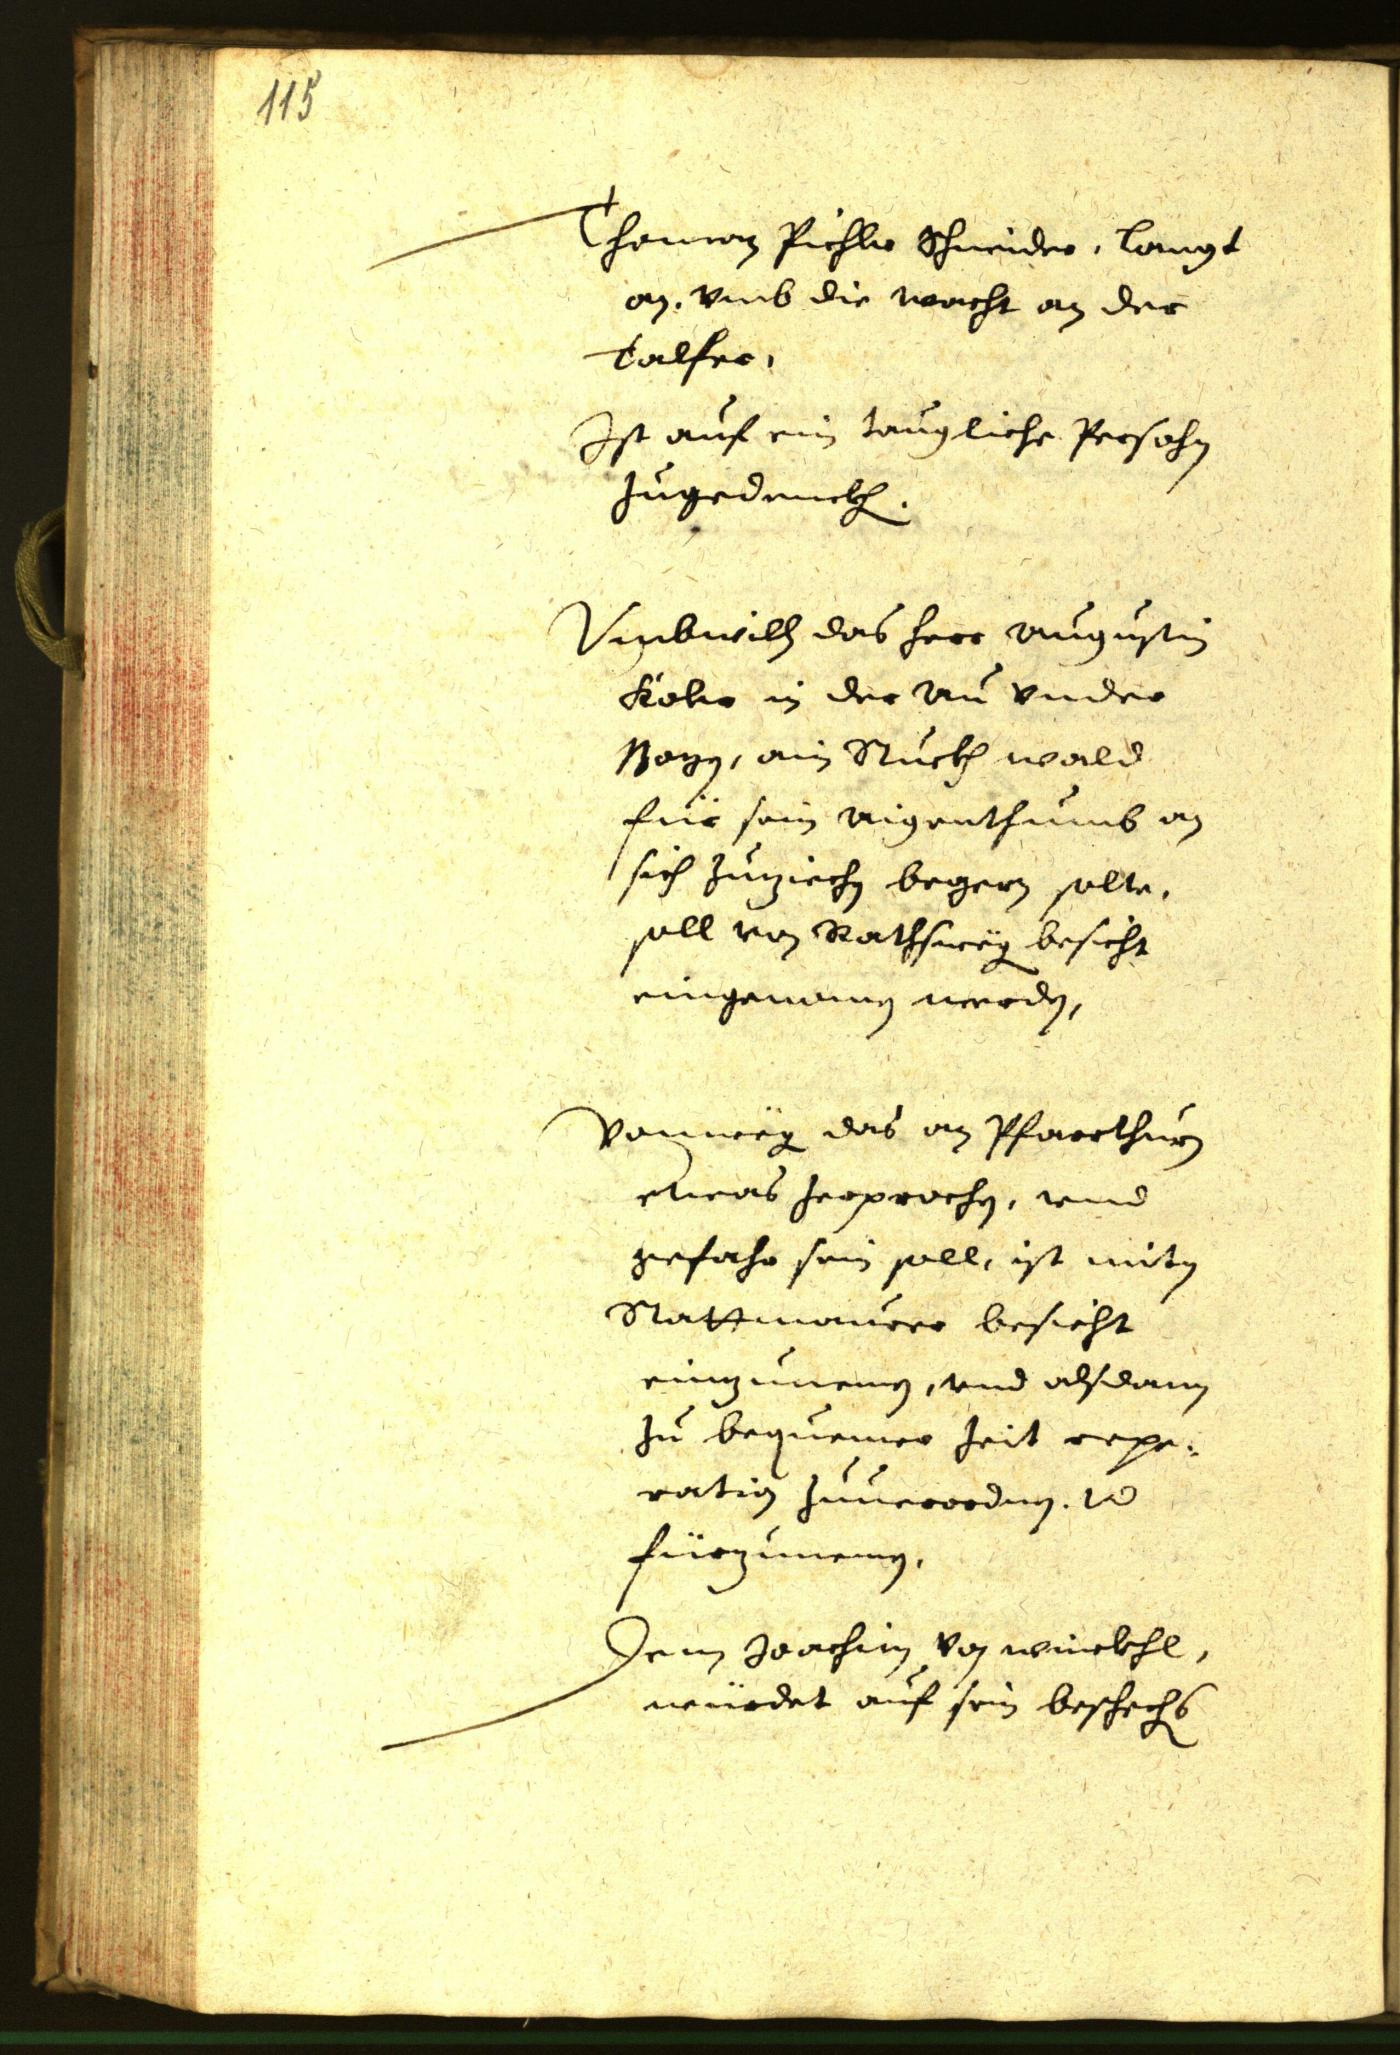 115
Thoman Pichler Schneider, langt
an, vmb die wacht an der
Talfer,
Ist auf ein taugliche Persohn
zugedenckh.
Vmbwilln das herr Augustin
Kober in der Au vnder
Bozn, ain Stuckh wald
für sein aigenthumb an
sich zuziechn begern solte,
soll von Rathsweg besicht
eingenomen werdn,
Vonweg das an Pfarrthurn
etwas zerprochn, vnd
gefahr sein soll, ist mitn
Stattmaurer besicht
einzunemen, vnd alsdann
zu bequemer Zeit repe-
ration zuuerordnen. vnd
fürzunemen,
Dem Joachim von winckhl,
würdet auf sein beschechs